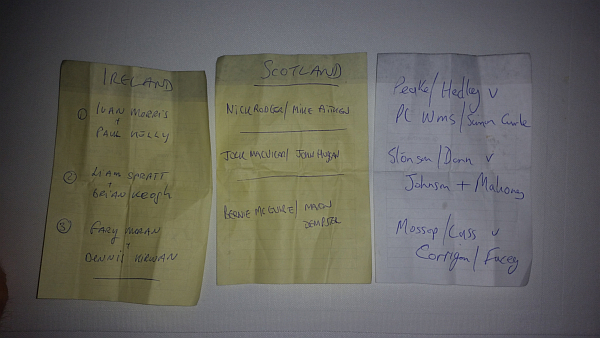 IRELAND
① IVAN MORRIS
+
PAUL KELLY
② LIAM SPRATT
+
BRIAN KEOGH
③ GARY MORAN
+
DENNIS KIRWAN
SCOTLAND
NICK RODGER / MIKE AITKEN
JOCK MACVICAR / JOHN HUGGAN
BERNIE McGUIRE / MARTIN
DEMPSTER
Peake / Hedley v
PC Wms /
/ Dunn v
Johnson + Mahoney
Mossop / Cass v
Corrigan / Facey